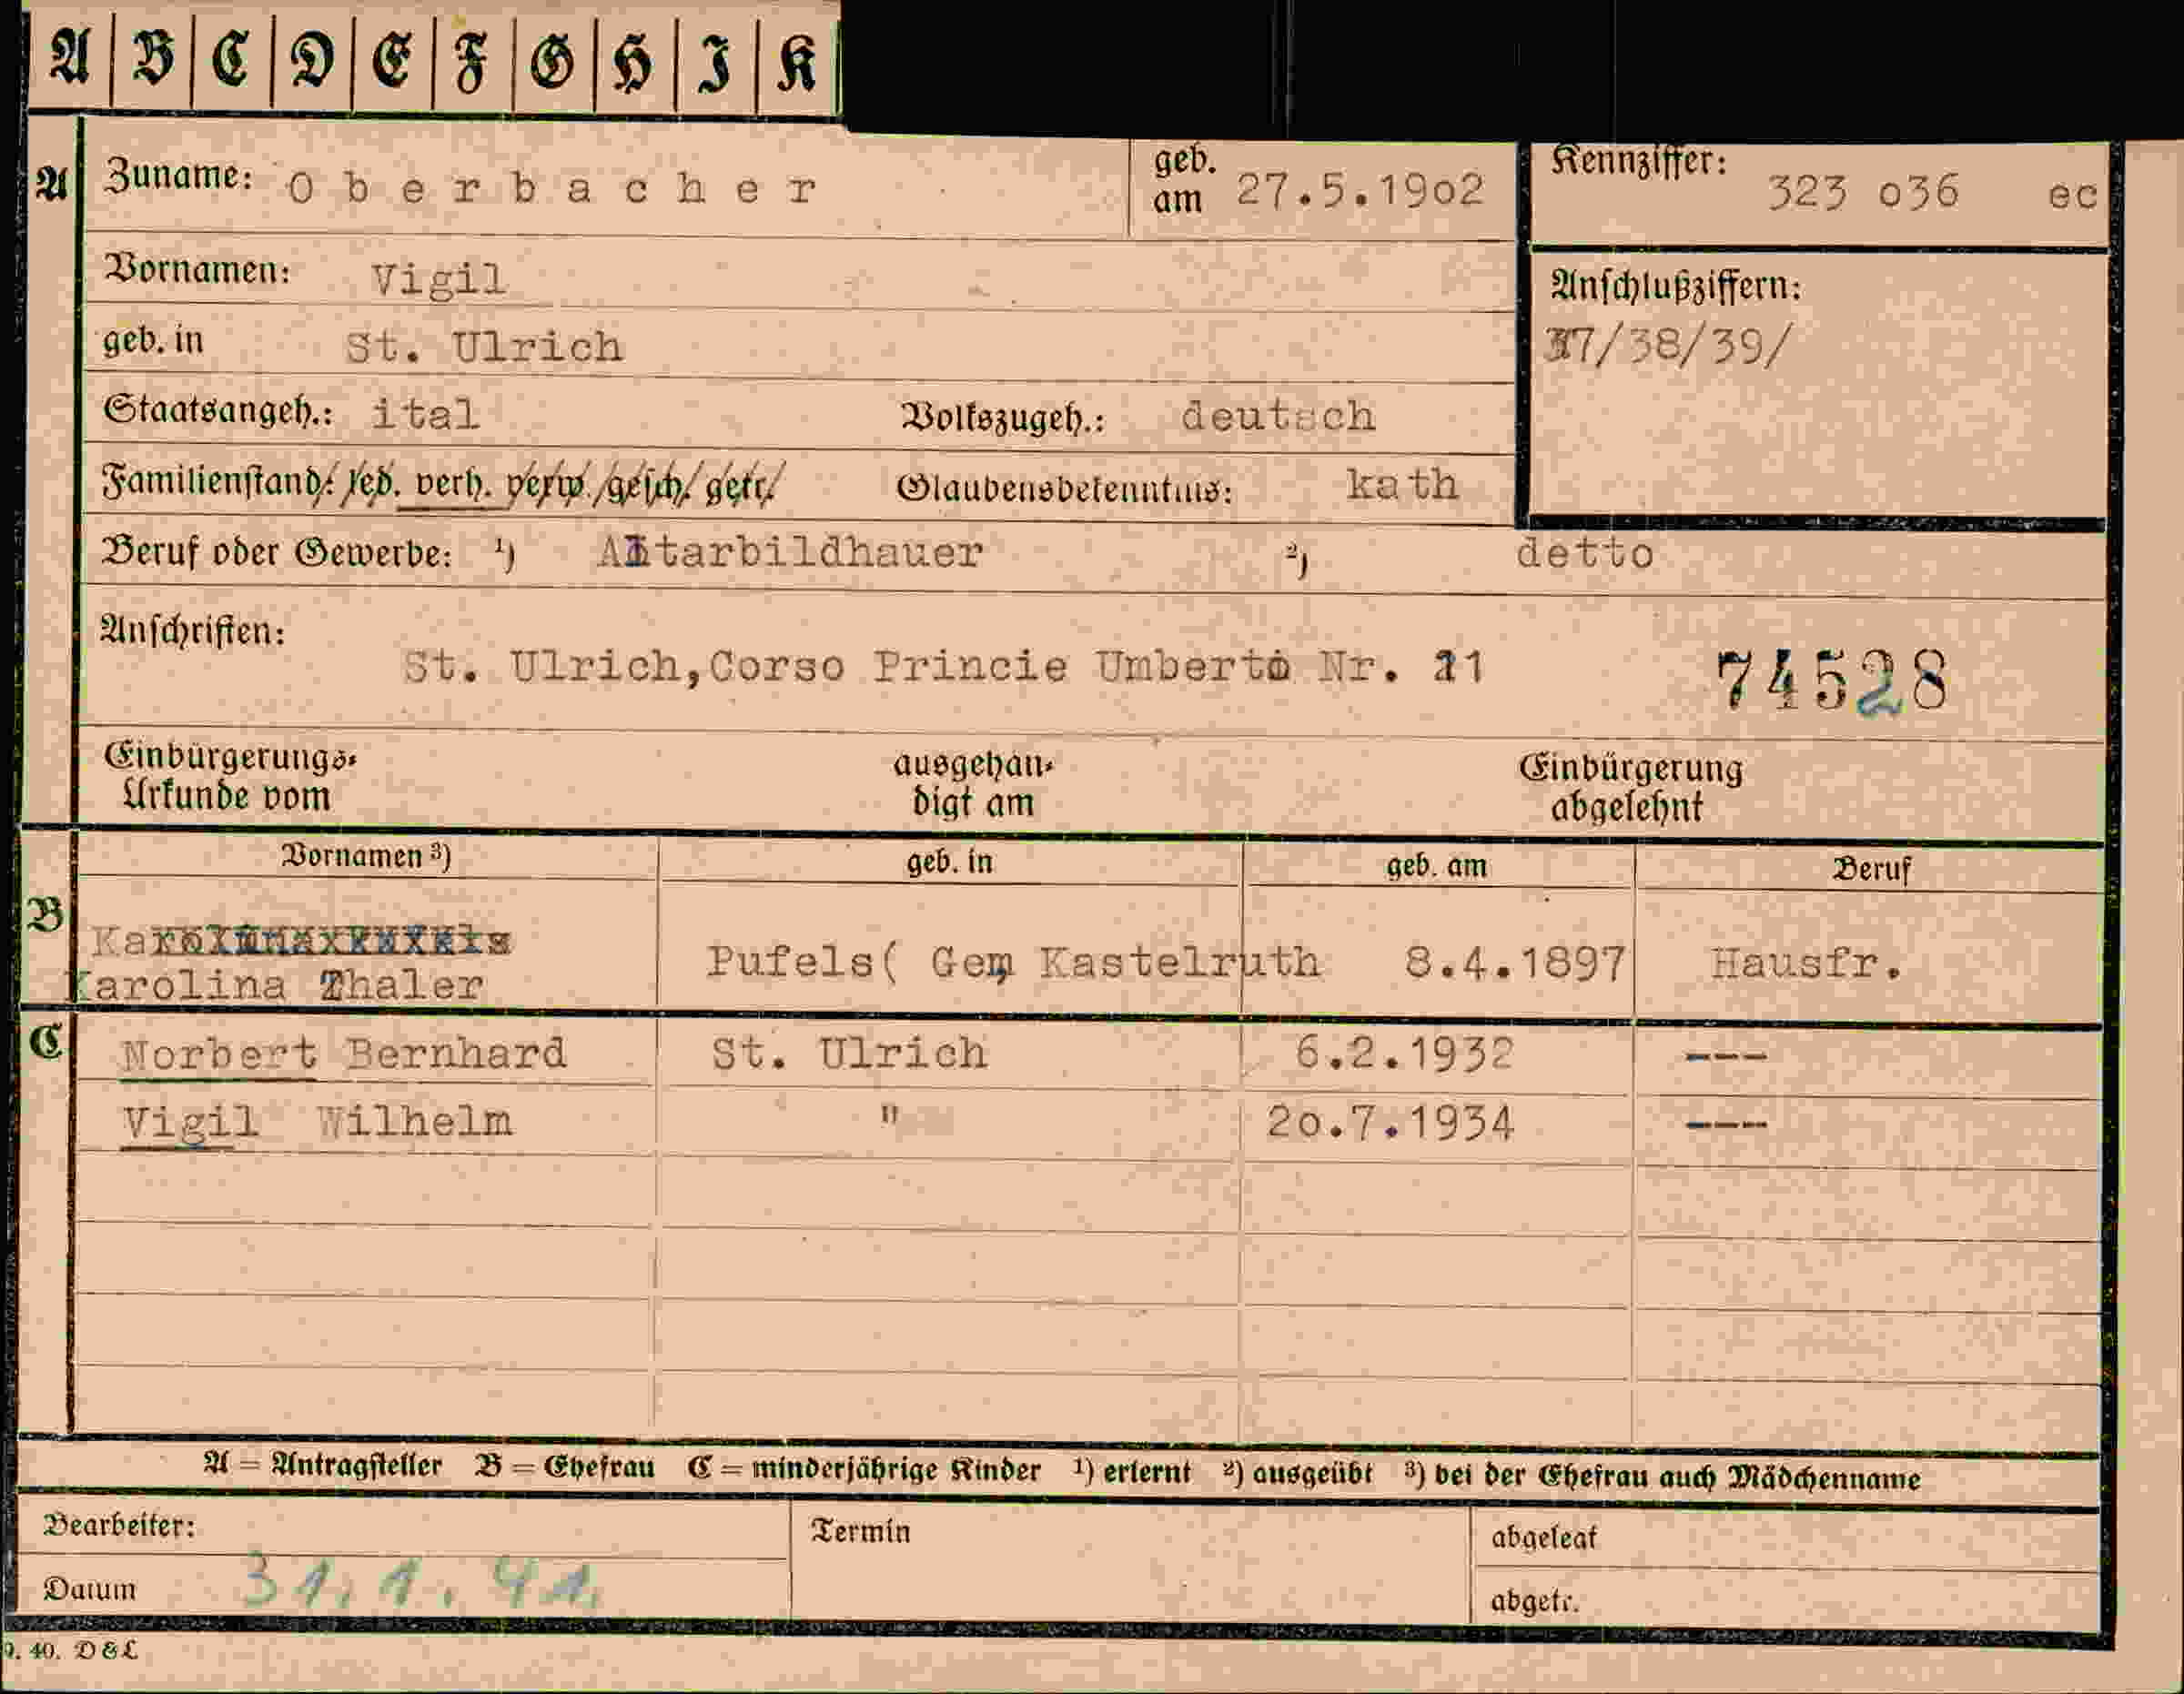 A B C D E F G H I K
A Zuname: Oberbacher geb. am 27.5.19o2 Kennziffer: 323 o36 ec
Vornamen: Vigil
Anschlußziffern:
37/38/39/
geb. in St. Ulrich
Staatsangeh.: ital Volkszugeh.: deutsch
Familienstand: led. verh. verw. gesch. getr. Glaubensbekenntnis: kath
Beruf oder Gewerbe: ¹) Altarbildhauer ²) detto
Anschriften:
St. Ulrich,Corso Princie Umberto Nr. 21 74528
Einbürgerungs-
Urkunde vom
ausgehän-
digt am
Einbürgerung
abgelehnt
Vornamen ³) geb. in geb. am Beruf
B
Karolina Thaler Pufels( Gem Kastelruth 8.4.1897 Hausfr.
C Norbert Bernhard St. Ulrich 6.2.1932 ---
Vigil Wilhelm " 2o.7.1934 ---
A = Antragsteller B = Ehefrau C = minderjährige Kinder ¹) erlernt ²) ausgeübt ³) bei der Ehefrau auch Mädchenname
Bearbeiter: Termin abgelegt
Datum 31.1.41. abgetr.
9. 40. D&L